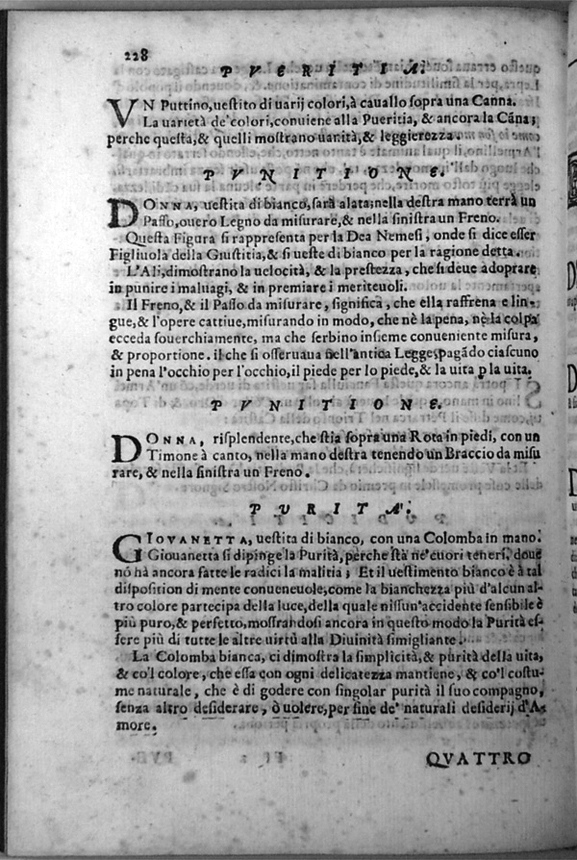 228
PVERITIA.
VN Puttino, uestito di uarij colori, à cauallo sopra una Canna.
La uarietà de' colori, conuiene alla Pueritia, & ancora la Cãna;
perche questa, & quelli mostrano uanità, & leggierezza.
PVNITIONE.
DONNA, uestita di bianco, sarà alata; nella destra mano terrà un
Passo, ouero Legno da misurare, & nella sinistra un Freno.
Questa Figura si rappresenta per la Dea Nemesi, onde si dice esser
Figliuola della Giustitia, & si ueste di bianco per la ragione detta.
L'Ali, dimostrano la uelocità, & la prestezza, che si deue adoprare
in punire i maluagi, & in premiare i meriteuoli.
Il Freno, & il Passo da misurare, significa, che ella raffrena e lin-
gue, & l'opere cattiue, misurando in modo, che nè la pena, nè la colpa
ecceda souerchiamente, ma che serbino insieme conueniente misura,
& proportione. il che si osseruaua nell'antica Legge, pagãdo ciascuno
in pena l'occhio per l'occhio, il piede per lo piede, & la uita p la uita.
PVNITIONE.
DONNA, risplendente, che stia sopra una Rota in piedi, con un
Timone à canto, nella mano destra tenendo un Braccio da misu
rare, & nella sinistra un Freno.
PVRITA'.
GIOVANETTA, uestita di bianco, con una Colomba in mano.
Giouanetta si dipinge la Purità, perche stà ne' cuori teneri, doue
nó hà ancora fatte le radici la malitia; Et il uestimento bianco è à tal
disposition di mente conueneuole, come la bianchezza più d'alcun al-
tro colore partecipa della luce, della quale nissun'accidente sensibile è
più puro, & perfetto, mostrandosi ancora in questo modo la Purità es-
sere più di tutte le altre uirtù alla Diuinità simigliante.
La Colomba bianca, ci dimostra la simplicità, & purità della uita,
& co'l colore, che essa con ogni delicatezza mantiene, & co'l costu-
me naturale, che è di godere con singolar purità il suo compagno,
senza altro desiderare, ò uolere, per fine de' naturali desiderij d'A-
more.
QVATTRO